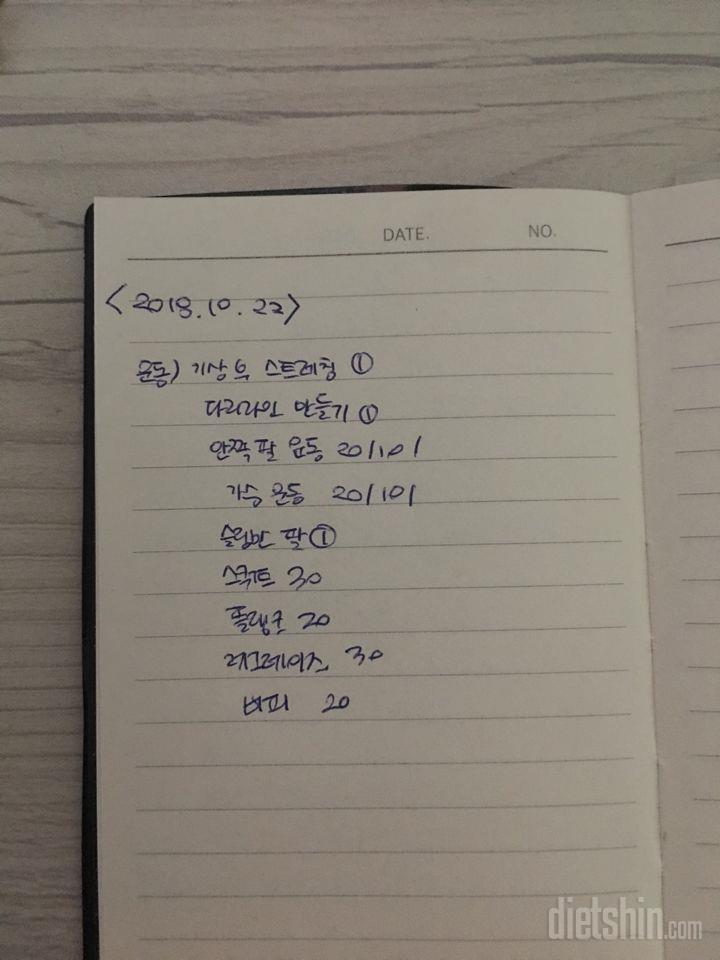 DATE. NO.
<2018.10.22>
운동) 기상 후 스트레칭 ①
다리라인 만들기 ①
안쪽 팔 운동 20/10/
가슴 운동 20/10/
슬림한 팔 ①
스쿼트 30
플랭크 20
레그레이즈 30
버피 20
dietshin.com